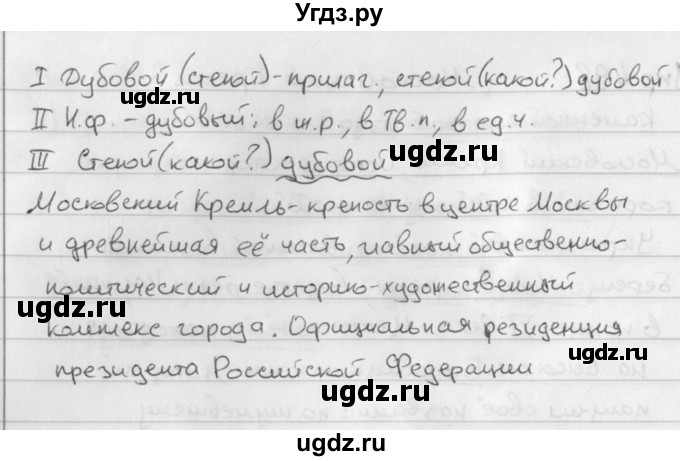 Угдз.ру
I Дубовой (стеной) - прилаг., стеной (какой?) дубовой
ugdz.ru
ugdz.ru
II Н.ф. - дубовый; в ж.р., в Тв.п., в ед.ч.
ugdz.ru
III Стеной (какой?) дубовой
Московский Кремль - крепость в центре Москвы
ugdz.ru
и древнейшая её часть, главный общественно-
политический и историко-художественный
ugdz.ru
комплекс города. Официальная резиденция
ugdz.ru
президента Российской Федерации
ugdz.ru
ugdz.ru